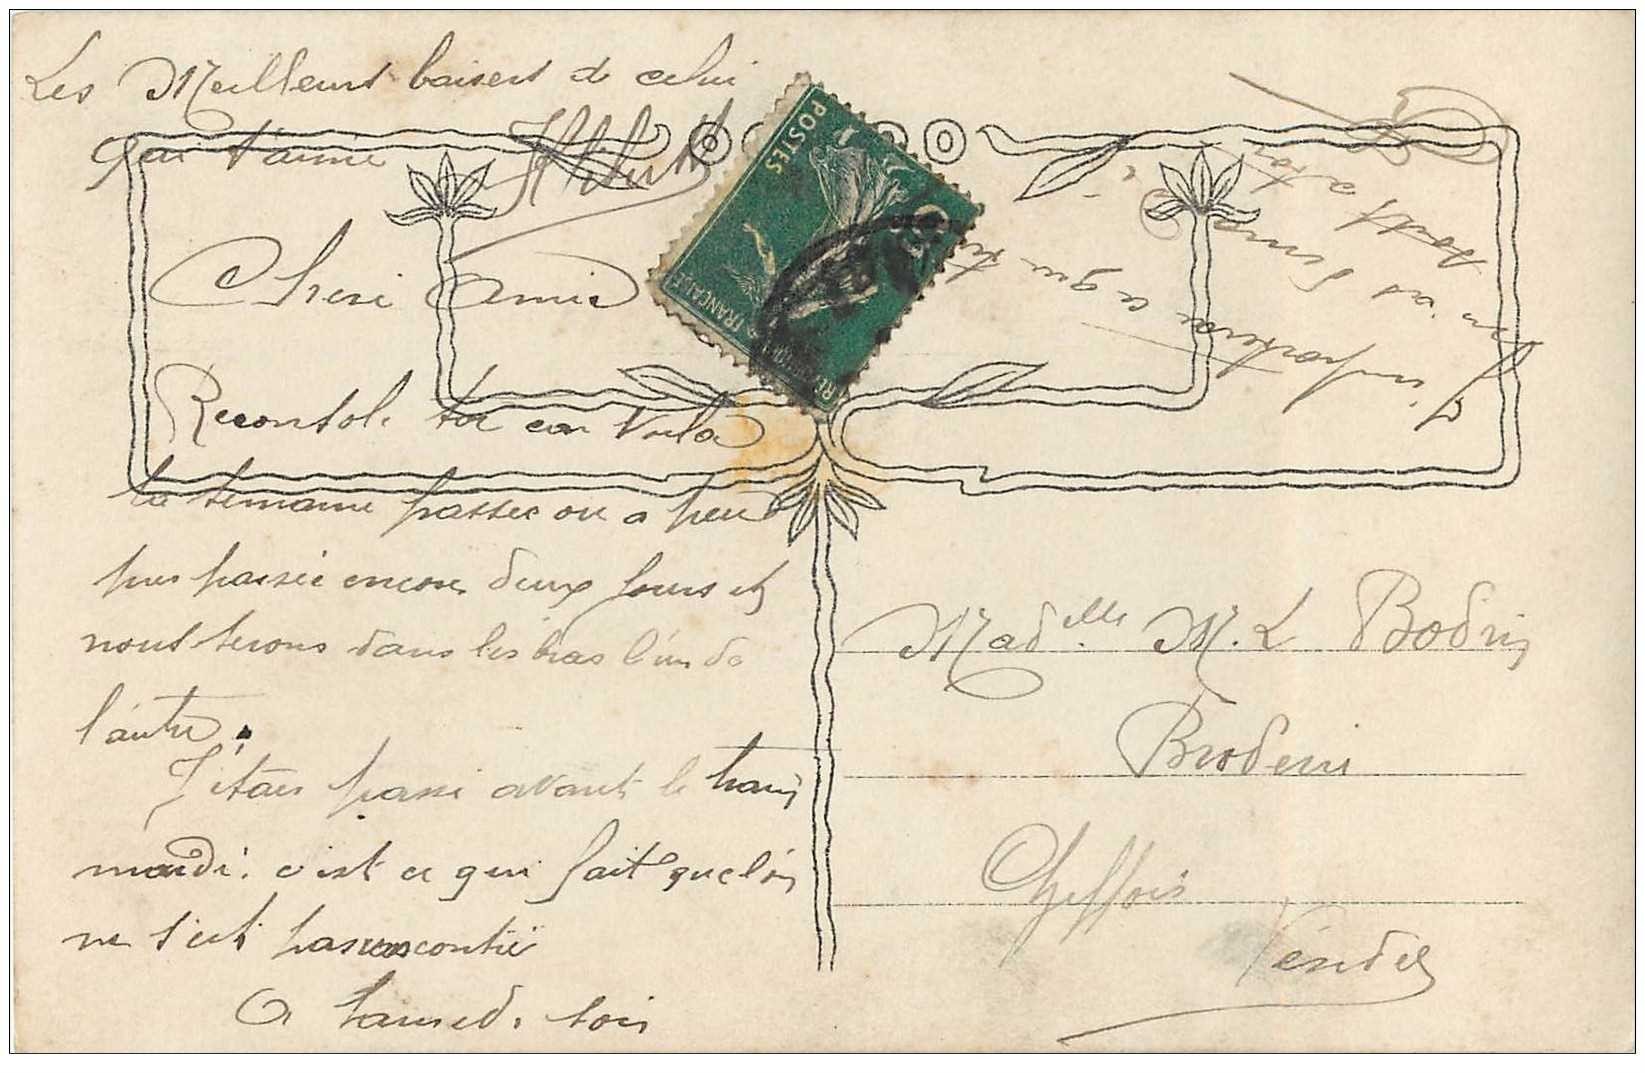 Les Meilleurs baisers de celui
qui t'aime
Cheri Amie
Reconsole toi car voila
la semaine passee ou a peu
pres passée encore deux jours et
nous serons dans les bras l'un de
l'autre.
J'étais passé avant le train
mardi. c'est ce qui fait que l'on
ne s'est pas rencontré
A samedi soir
POSTES
FRANÇAISE
ce que tu
as
a toi
Madelle M. L Bodin
Broderie
Cheffois
Vendée